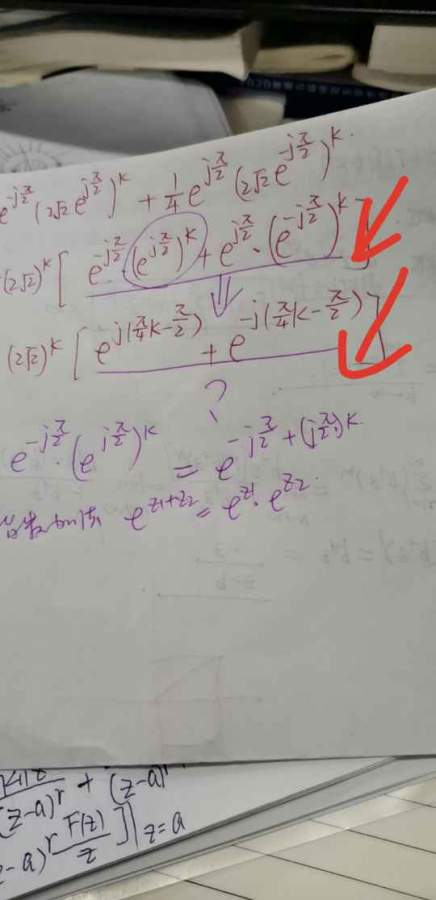 e^{-j\frac{π}{2}} (2√2 e^{j\frac{π}{2}})^k + \frac{1}{4} e^{j\frac{π}{2}} (2√2 e^{-j\frac{π}{2}})^k
(2√2)^k [ e^{-j\frac{π}{2}} · (e^{j\frac{π}{2}})^k + e^{j\frac{π}{2}} · (e^{-j\frac{π}{2}})^k ]
(2√2)^k [ e^{j(\frac{π}{4}k - \frac{π}{2})} + e^{-j(\frac{π}{4}k - \frac{π}{2})} ]
?
e^{-j\frac{π}{2}} · (e^{j\frac{π}{2}})^k = e^{-j\frac{π}{2} + (j\frac{π}{2})k}
e^{z1+z2} = e^{z1} · e^{z2}
(z-a)^r + (z-a)^r
-a)^r \frac{F(z)}{z} ]|z=a